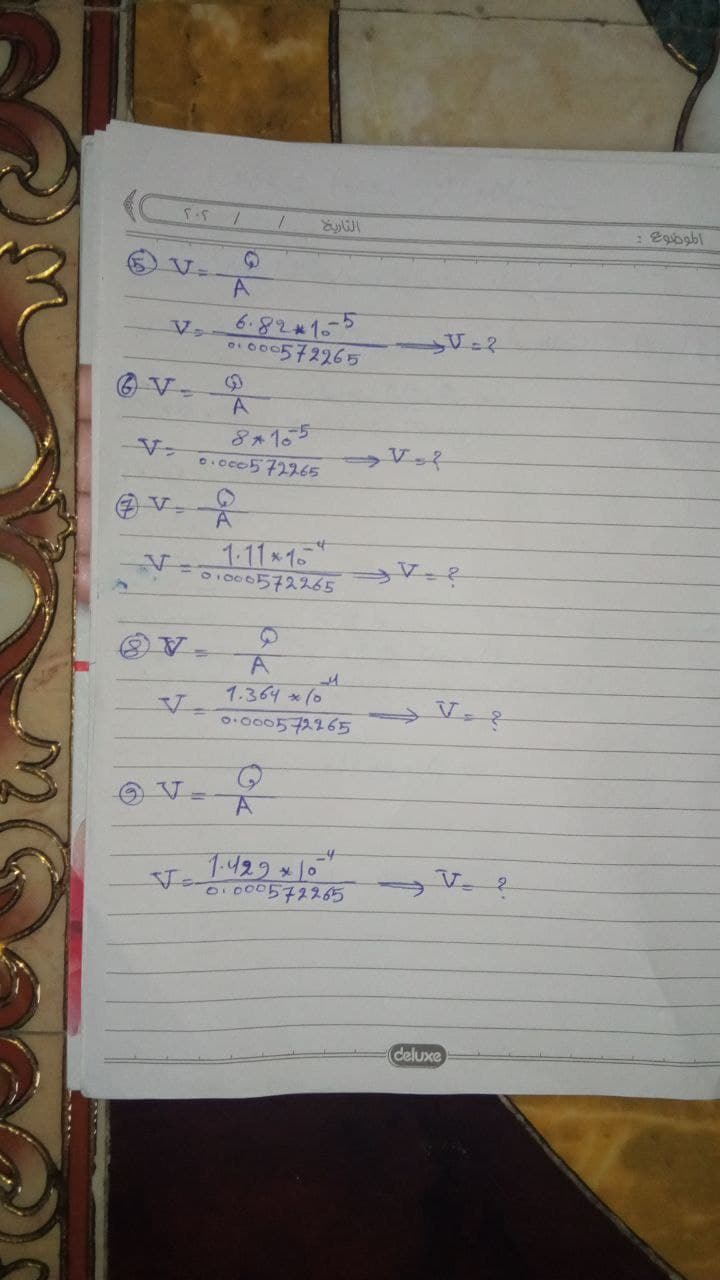 الموضوع :
التاريخ / / ٢٠٢
⑤ V = Q / A
V = 6.82 * 10^-5 / 0.000572265 → V = ?
⑥ V = Q / A
V = 8 * 10^-5 / 0.000572265 → V = ?
⑦ V = Q / A
V = 1.11 * 10^-4 / 0.000572265 → V = ?
⑧ V = Q / A
V = 1.364 * 10^-4 / 0.000572265 → V = ?
⑨ V = Q / A
V = 1.429 * 10^-4 / 0.000572265 → V = ?
deluxe